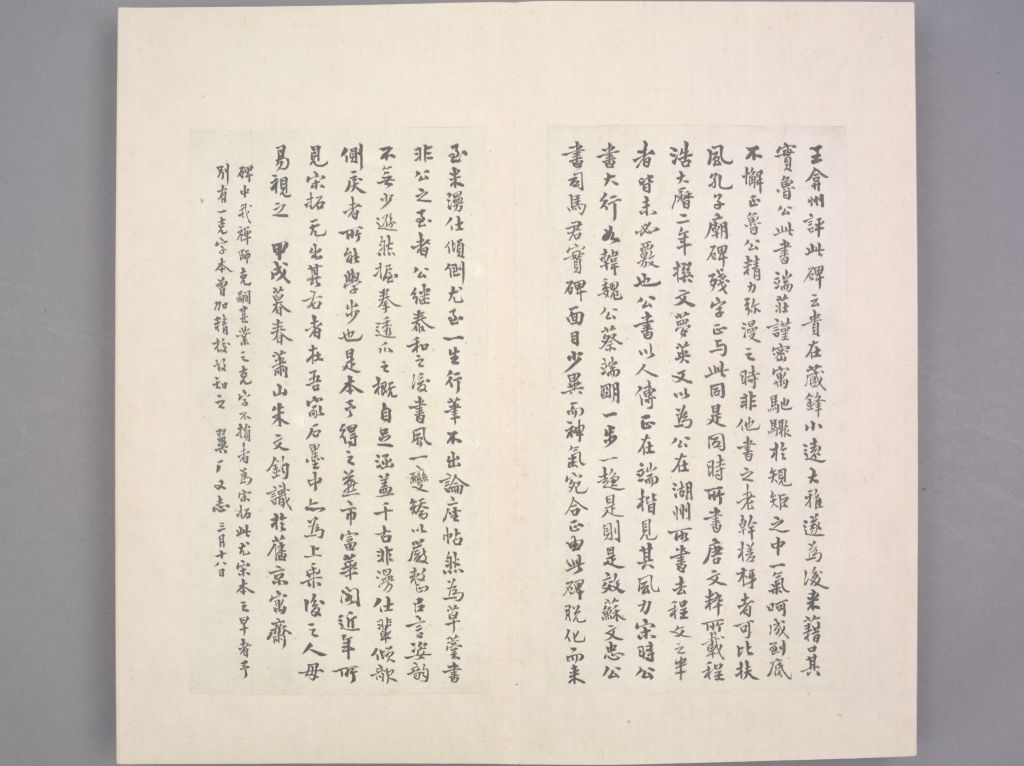 王弇州評此碑云貴在藏鋒小遠大雅遂為後来藉口其
實魯公此書端莊謹密寓馳驟於規矩之中一氣呵成到底
不懈正魯公精力弥漫之時非他書之老幹槎枒者可比扶
風孔子廟碑殘字正与此同是同時所書唐文粹所載程
浩大曆二年撰文夢英又以為公在湖州所書去程文之半
者皆未必覈也公書以人傳正在端楷見其風力宋時公
書大行如韓魏公蔡端明一步一趨是則是效蘇文忠公
書司馬君實碑面目少異而神氣宛合正由此碑脱化而来
至米漫仕傾倒尤至一生行筆不出論座帖然為草藁書
非公之至者公继泰和之後書風一變矯以嚴整召言姿韵
不無少遜然握拳透爪之概自足涵盖千古非漫仕輩傾欹
側戾者所能學步也是本予得之燕市富華閣近年所
見宋拓无出其右者在吾家石墨中亦為上乘後之人毋
易視之 甲戌暮春蕭山朱文鈞識於舊京寓齋
碑中我禪師克嗣其業之克字不損者為宋拓此尤宋本之早者予
别有一克字本曾加精校故知之 翼厂又志 三月十八日